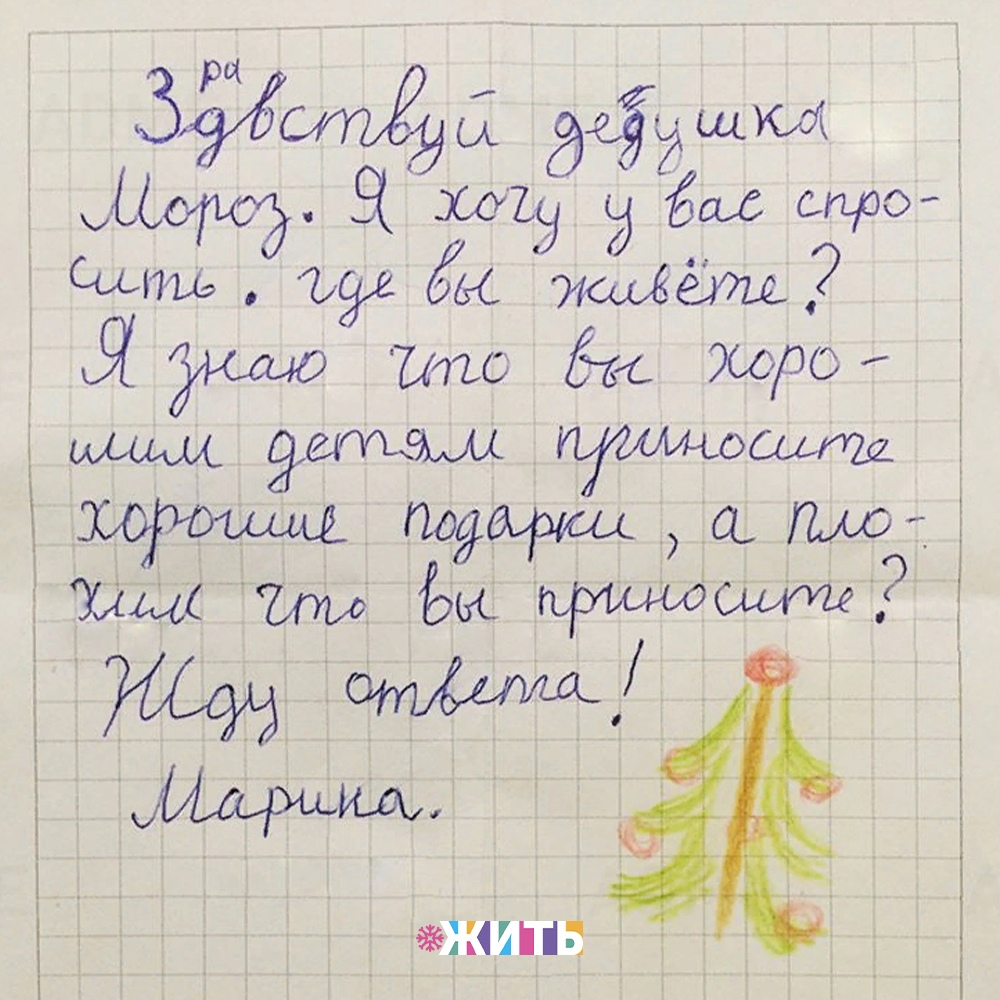 Здравствуй дедушка
Мороз. Я хочу у вас спро-
сить. где вы живёте?
Я знаю что вы хоро-
шим детям приносите
хорошие подарки, а пло-
хим что вы приносите?
Жду ответа!
Марина.
ЖИТЬ